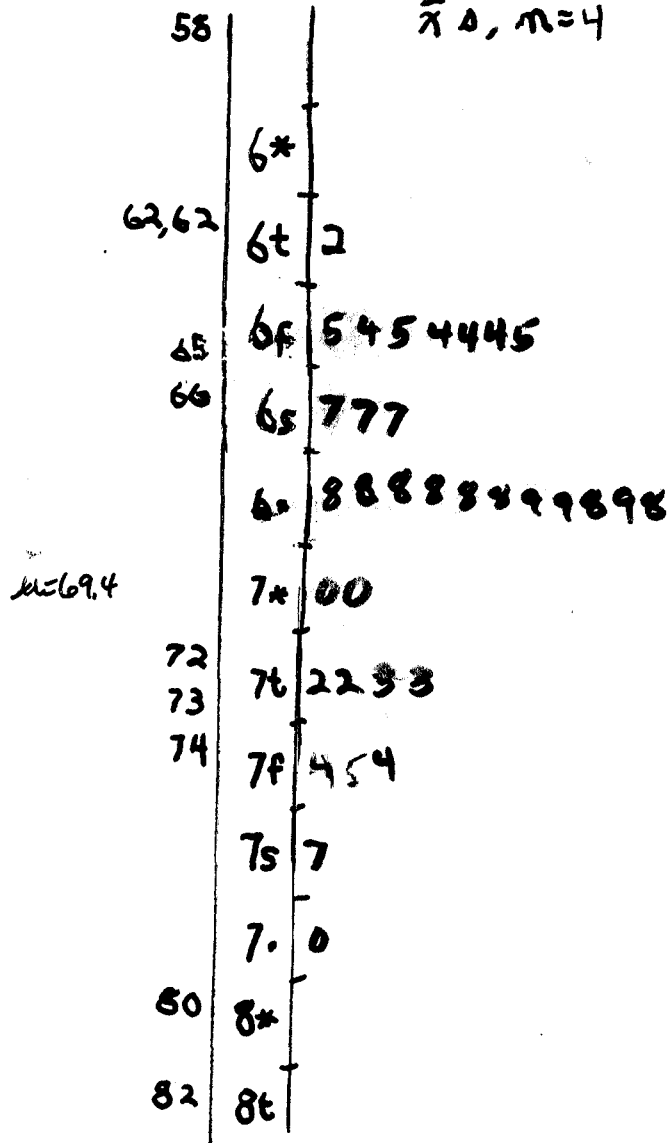 58 x̄ s, n=4
6*
62,62 6t 2
65 6f 5454445
66 6s 777
6• 88888899898
μ=69.4 7* 00
72 7t 2233
73
74 7f 454
7s 7
7• 0
80 8*
82 8t